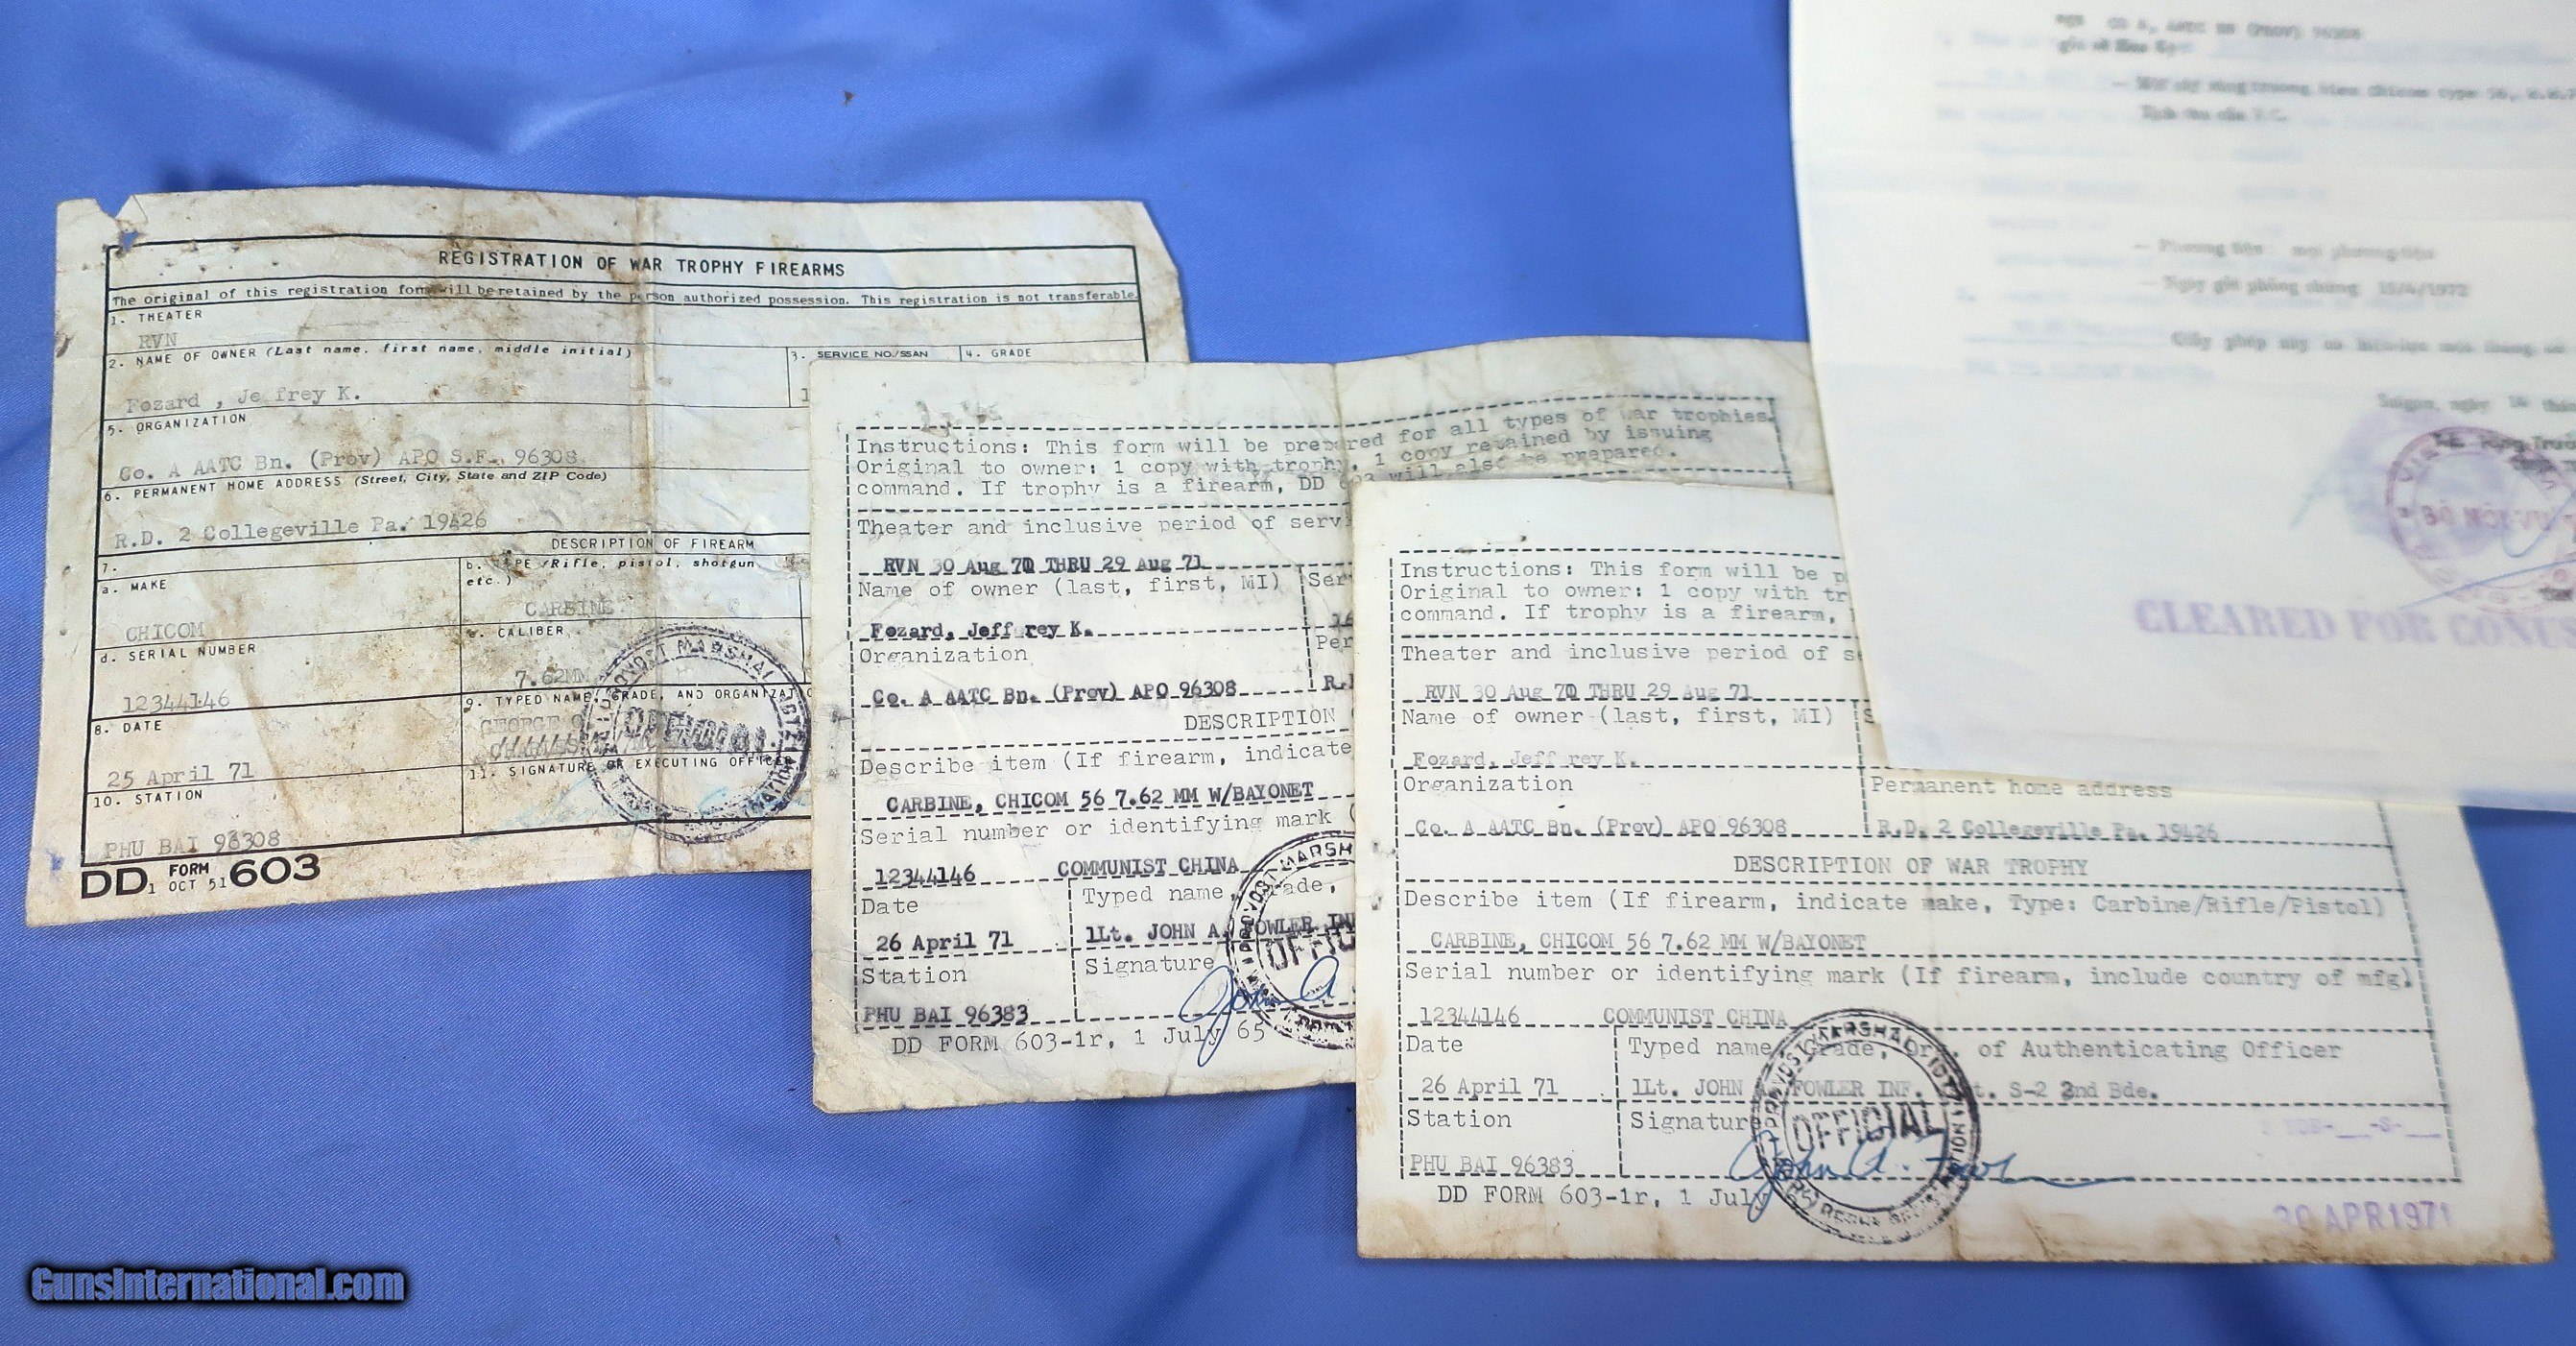 REGISTRATION OF WAR TROPHY FIREARMS
The original of this registration form will be retained by the person authorized possession. This registration is not transferable.
1. THEATER
RVN
2. NAME OF OWNER (Last name, first name, middle initial)
3. SERVICE NO./SSAN
4. GRADE
Fozard , Je frey K.
1
5. ORGANIZATION
Co. A AATC Bn. (Prov) APO S.F. 96308
6. PERMANENT HOME ADDRESS (Street, City, State and ZIP Code)
R.D. 2 Collegeville Pa. 19426
7. DESCRIPTION OF FIREARM
a. MAKE
CHICOM
b. TYPE (Rifle, pistol, shotgun, etc.)
CARBINE
d. SERIAL NUMBER
12344146
e. CALIBER
7.62MM
8. DATE
25 April 71
9. TYPED NAME, GRADE, AND ORGANIZAT
GEORGE
OFFICIAL
PROVOST MARSHAL
10. STATION
PHU BAI 96308
11. SIGNATURE OF EXECUTING OFFICE
DD FORM 603
1 OCT 51
Instructions: This form will be prepared for all types of war trophies.
Original to owner: 1 copy with trophy. 1 copy retained by issuing
command. If trophy is a firearm, DD 603 will also be prepared.
Theater and inclusive period of serv
RVN 30 Aug 70 THRU 29 Aug 71
Name of owner (last, first, MI)
Ser
Fozard, Jeff rey K.
16
Organization
Per
Co. A AATC Bn. (Prov) APO 96308
R.
DESCRIPTION
Describe item (If firearm, indicate
CARBINE, CHICOM 56 7.62 MM W/BAYONET
Serial number or identifying mark (
12344146 COMMUNIST CHINA
Date
Typed name, Grade,
26 April 71
1Lt. JOHN A. FOWLER IN
Station
Signature
John A
PHU BAI 96383
DD FORM 603-1r, 1 July 65
Instructions: This form will be p
Original to owner: 1 copy with tr
command. If trophy is a firearm,
Theater and inclusive period of s
RVN 30 Aug 70 THRU 29 Aug 71
Name of owner (last, first, MI)
S
Fozard, Jeff rey K.
Organization
Permanent home address
Co. A AATC Bn. (Prov) APO 96308
R.D. 2 Collegeville Pa. 19426
DESCRIPTION OF WAR TROPHY
Describe item (If firearm, indicate make, Type: Carbine/Rifle/Pistol)
CARBINE, CHICOM 56 7.62 MM W/BAYONET
Serial number or identifying mark (If firearm, include country of mfg)
12344146 COMMUNIST CHINA
Date
Typed name, Grade, Org. of Authenticating Officer
26 April 71
1Lt. JOHN A. FOWLER INF. t. S-2 2nd Bde.
Station
Signature
OFFICIAL
PROVOST MARSHAL
John A. Fowl
PHU BAI 96383
DD FORM 603-1r, 1 July 65
30 APR 1971
CO A, AATC BN (PROV) 96308
type 56,
- Phương tiện : mọi phương tiện
15/4/1972
Saigon, ngày
BỘ NỘI-VỤ
CLEARED FOR CONUS
GunsInternational.com